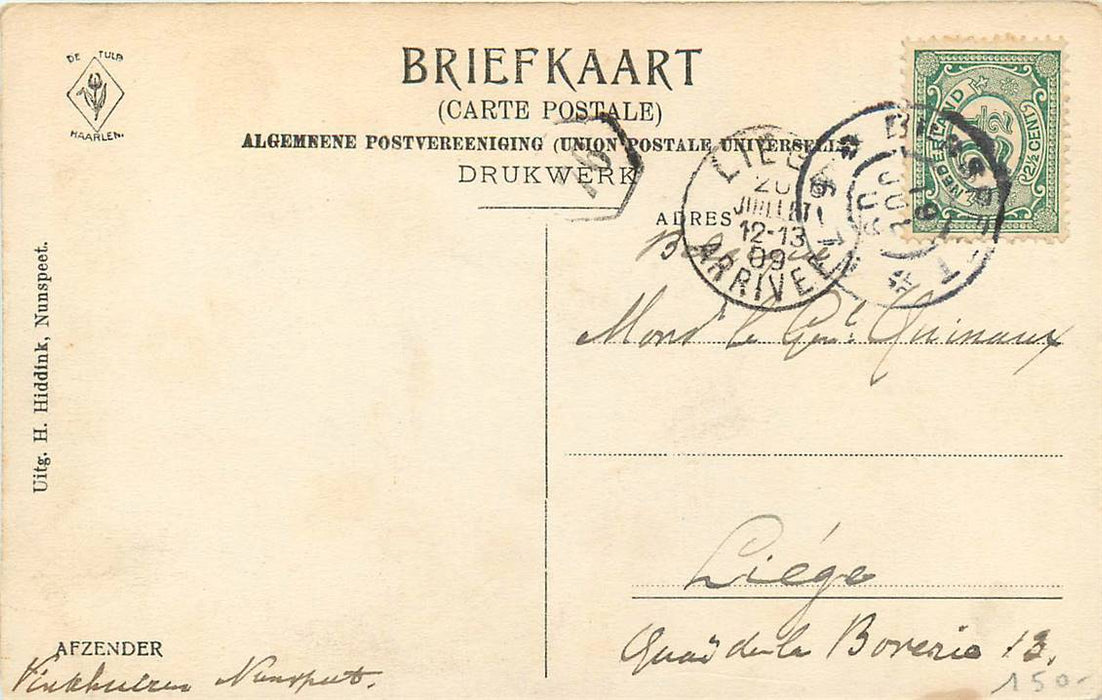 DE TULP
HAARLEM.
BRIEFKAART
(CARTE POSTALE)
ALGEMEENE POSTVEREENIGING (UNION POSTALE UNIVERSELLE)
DRUKWERK
NEDERLAND
2½ CENT
LIEGE
20
JUILLET
12-13
09
ARRIVEE
ADRES
Mons.r le Gén.l Quinaux
Liége
Quai de la Boverie 13.
Uitg. H. Hiddink, Nunspeet.
AFZENDER
Nunspeet.
150-